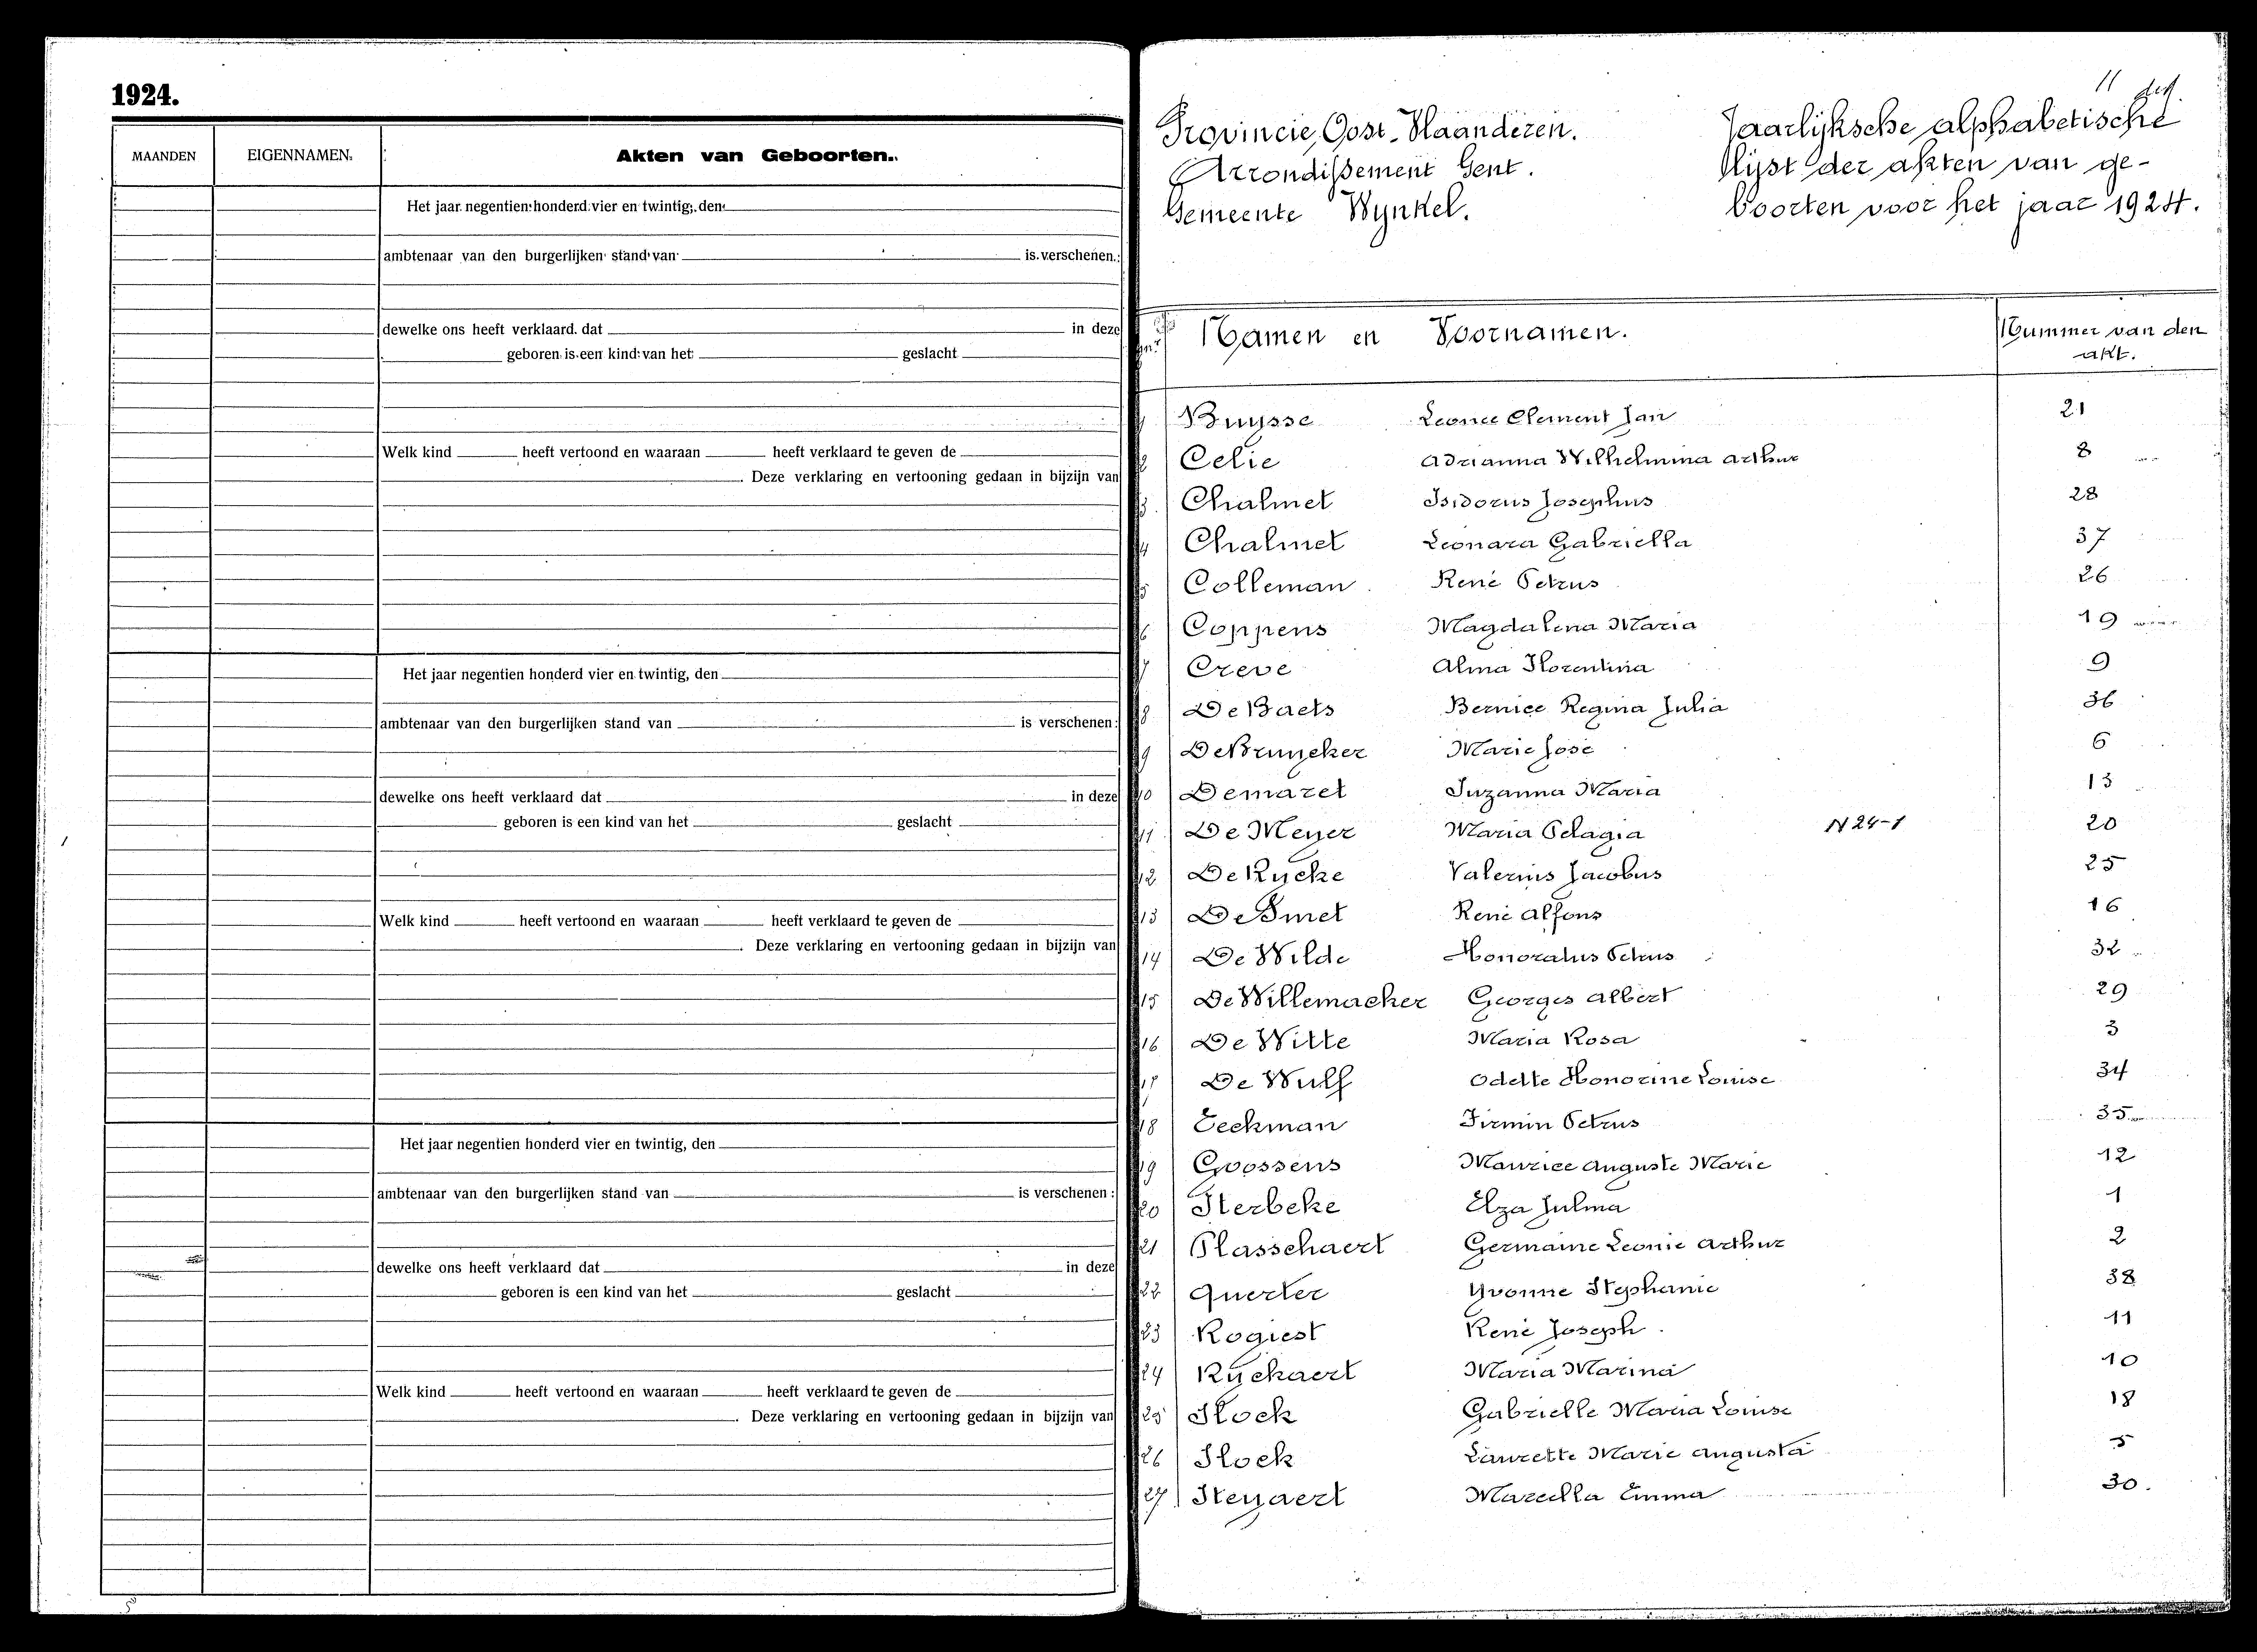 1924.
MAANDEN EIGENNAMEN. Akten van Geboorten.
Het jaar negentien honderd vier en twintig, den
ambtenaar van den burgerlijken stand van is verschenen:
dewelke ons heeft verklaard dat in deze
geboren is een kind van het geslacht
Welk kind heeft vertoond en waaraan heeft verklaard te geven de
. Deze verklaring en vertooning gedaan in bijzijn van
Het jaar negentien honderd vier en twintig, den
ambtenaar van den burgerlijken stand van is verschenen:
dewelke ons heeft verklaard dat in deze
geboren is een kind van het geslacht
Welk kind heeft vertoond en waaraan heeft verklaard te geven de
. Deze verklaring en vertooning gedaan in bijzijn van
Het jaar negentien honderd vier en twintig, den
ambtenaar van den burgerlijken stand van is verschenen :
dewelke ons heeft verklaard dat in deze
geboren is een kind van het geslacht
Welk kind heeft vertoond en waaraan heeft verklaard te geven de
. Deze verklaring en vertooning gedaan in bijzijn van
11
Provincie Oost-Vlaanderen.
Arrondissement Gent.
Gemeente Wynkel.
Jaarlijksche alphabetische
lijst der akten van ge-
boorten voor het jaar 1924.
Namen en Voornamen. Nummer van den
akt.
1 Buysse Leonce Clement Jan 21
2 Celie Adrianna Wilhelmina Arthur 8
3 Chalmet Isidorus Josephus 28
4 Chalmet Leonara Gabriella 37
5 Colleman René Petrus 26
6 Coppens Magdalena Maria 19
7 Creve Alma Florentina 9
8 De Baets Bernice Regina Julia 36
9 De Bruycker Marie José 6
10 Demaret Suzanna Maria 13
11 De Meyer Maria Pelagia N 24-1 20
12 De Rycke Valerius Jacobus 25
13 De Smet René Alfons 16
14 De Wilde Honoratus Petrus 32
15 De Willemacker Georges Albert 29
16 De Witte Maria Rosa 3
17 De Wulf Odette Honorine Louise 34
18 Eeckman Firmin Petrus 35
19 Goossens Maurice Auguste Marie 12
20 Sterbeke Elza Julma 1
21 Plasschaert Germaine Leonie Arthur 2
22 Querter Yvonne Stephanie 38
23 Rogiest René Joseph 11
24 Ryckaert Maria Marina 10
25 Stock Gabrielle Maria Louise 18
26 Stock Laurette Marie Augusta 5
27 Steyaert Marcella Emma 30.